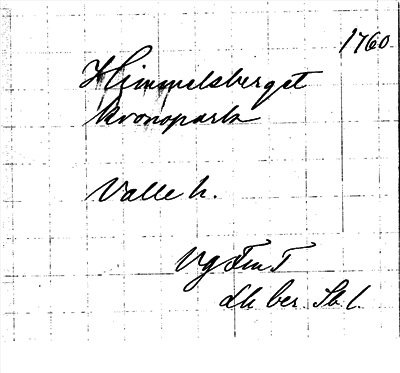 1760
Himmelsberget
kronopark
Valle h.
Vg
ber. Sk l.